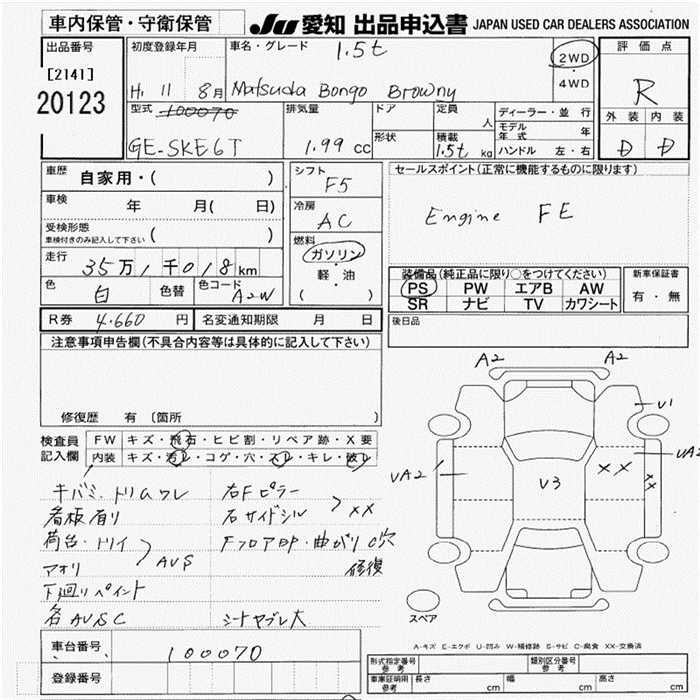 車内保管・守衛保管
JU 愛知 出品申込書 JAPAN USED CAR DEALERS ASSOCIATION
出品番号
[2141]
20123
初度登録年月
H1 11 8月
車名・グレード 1.5t
Matsuda Bongo Browny
2WD
・
4WD
評価点
R
外装 内装
D D
型式 100070
GE-SKE6T
排気量
1.99 cc
ドア
形状
定員
人
積載
1.5t kg
ディーラー・並行
モデル年式 年
ハンドル 左・右
車歴 自家用・( )
車検 年 月( 日)
受検形態
車検付きのみ記入して下さい ( )
走行 35万1千018km
色 白 色替 色コード A2W
シフト
F5
冷房
AC
燃料
ガソリン
・
軽・油
( )
セールスポイント(正常に機能するものに限ります)
Engine FE
装備品(純正品に限り○をつけてください)
PS PW エアB AW
SR ナビ TV カワシート
新車保証書
有・無
R券 4.660 円 名変通知期限 月 日
後日品
注意事項申告欄(不具合内容等は具体的に記入して下さい)
修復歴 有 〔箇所 〕
検査員
記入欄
FW キズ・飛石・ヒビ割・リペア跡・X要
内装 キズ・汚レ・コゲ・穴・スレ・キレ・破レ
キバミ、トリムワレ
看板有り
荷台・トリイ
アオリ AUS
下廻りペイント
各AUSC
右Fピラー
右サイドシル XX
FフロアDP・曲がりC穴
修復
シートヤブレ大
A2 A2
U1
UA2
UA2
XX
XX
U3
スペア
A-キズ E-エクボ U-凹み W-補修跡 S-サビ C-腐食 XX-交換済
車台番号 100070
登録番号
形式指定番号
参考
類別区分番号
参考
車庫証明用
参考
長さ cm 幅 cm 高さ cm